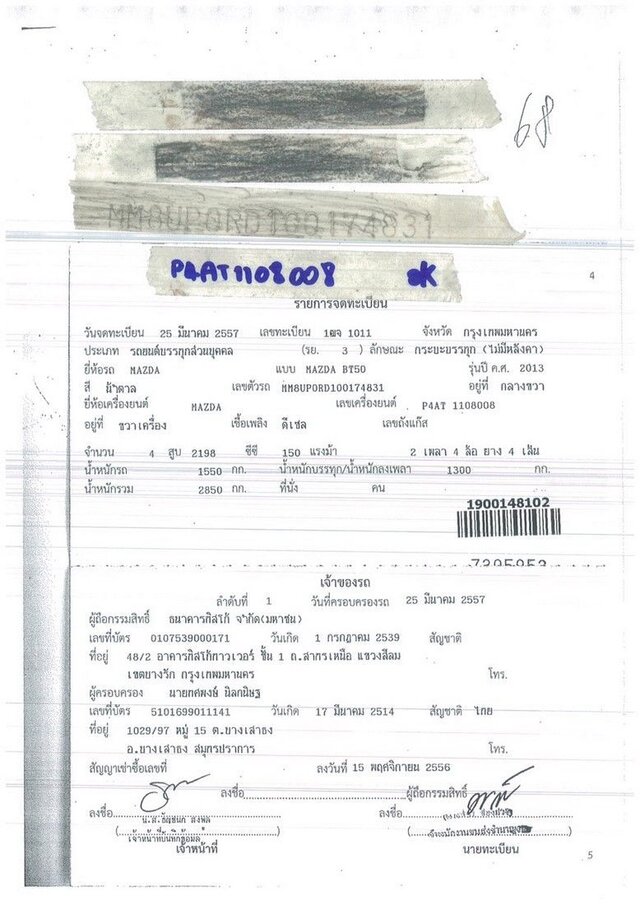 68
MM8UP0RD100174831
P4AT1108008 OK
4
รายการจดทะเบียน
วันจดทะเบียน 25 มีนาคม 2557 เลขทะเบียน 1ฒจ 1011 จังหวัด กรุงเทพมหานคร
ประเภท รถยนต์บรรทุกส่วนบุคคล (รย. 3 ) ลักษณะ กระบะบรรทุก (ไม่มีหลังคา)
ยี่ห้อรถ MAZDA แบบ MAZDA BT50 รุ่นปี ค.ศ. 2013
สี น้ำตาล เลขตัวรถ MM8UP0RD100174831 อยู่ที่ กลางขวา
ยี่ห้อเครื่องยนต์ MAZDA เลขเครื่องยนต์ P4AT 1108008
อยู่ที่ ขวาเครื่อง เชื้อเพลิง ดีเซล เลขถังแก๊ส
จำนวน 4 สูบ 2198 ซีซี 150 แรงม้า 2 เพลา 4 ล้อ ยาง 4 เส้น
น้ำหนักรถ 1550 กก. น้ำหนักบรรทุก/น้ำหนักลงเพลา 1300 กก.
น้ำหนักรวม 2850 กก. ที่นั่ง คน
1900148102
เจ้าของรถ
ลำดับที่ 1 วันที่ครอบครองรถ 25 มีนาคม 2557
ผู้ถือกรรมสิทธิ์ ธนาคารทิสโก้ จำกัด(มหาชน)
เลขที่บัตร 0107539000171 วันเกิด 1 กรกฎาคม 2539 สัญชาติ
ที่อยู่ 48/2 อาคารทิสโก้ทาวเวอร์ ชั้น 1 ถ.สาทรเหนือ แขวงสีลม
เขตบางรัก กรุงเทพมหานคร โทร.
ผู้ครอบครอง นายทศพงษ์ นิลกนิษฐ
เลขที่บัตร 5101699011141 วันเกิด 17 มีนาคม 2514 สัญชาติ ไทย
ที่อยู่ 1029/97 หมู่ 15 ต.บางเสาธง
อ.บางเสาธง สมุทรปราการ โทร.
สัญญาเช่าซื้อเลขที่ ลงวันที่ 15 พฤศจิกายน 2556
ลงชื่อ ผู้ถือกรรมสิทธิ์
ลงชื่อ ลงชื่อ
เจ้าหน้าที่บันทึกข้อมูล
เจ้าหน้าที่ นายทะเบียน
5